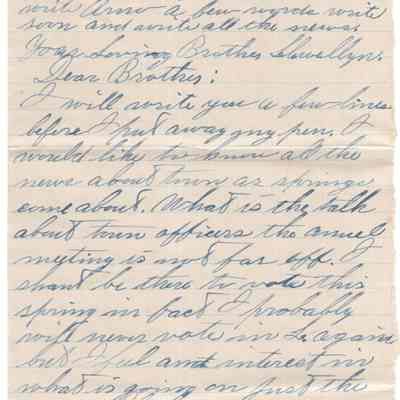 write Arno a few words write
soon and write all the news.
Your Loving Brother Llewellyn.
Dear Brother:
I will write you a few lines
before I put away my pen. I
would like to know all the
news about town as springs
come about. What is the talk
about town officers the anuel
meeting is not far off. I
shant be there to vote this
spring in fact I probably
will never vote in L. again
but I ful amt interest in
what is going on just the